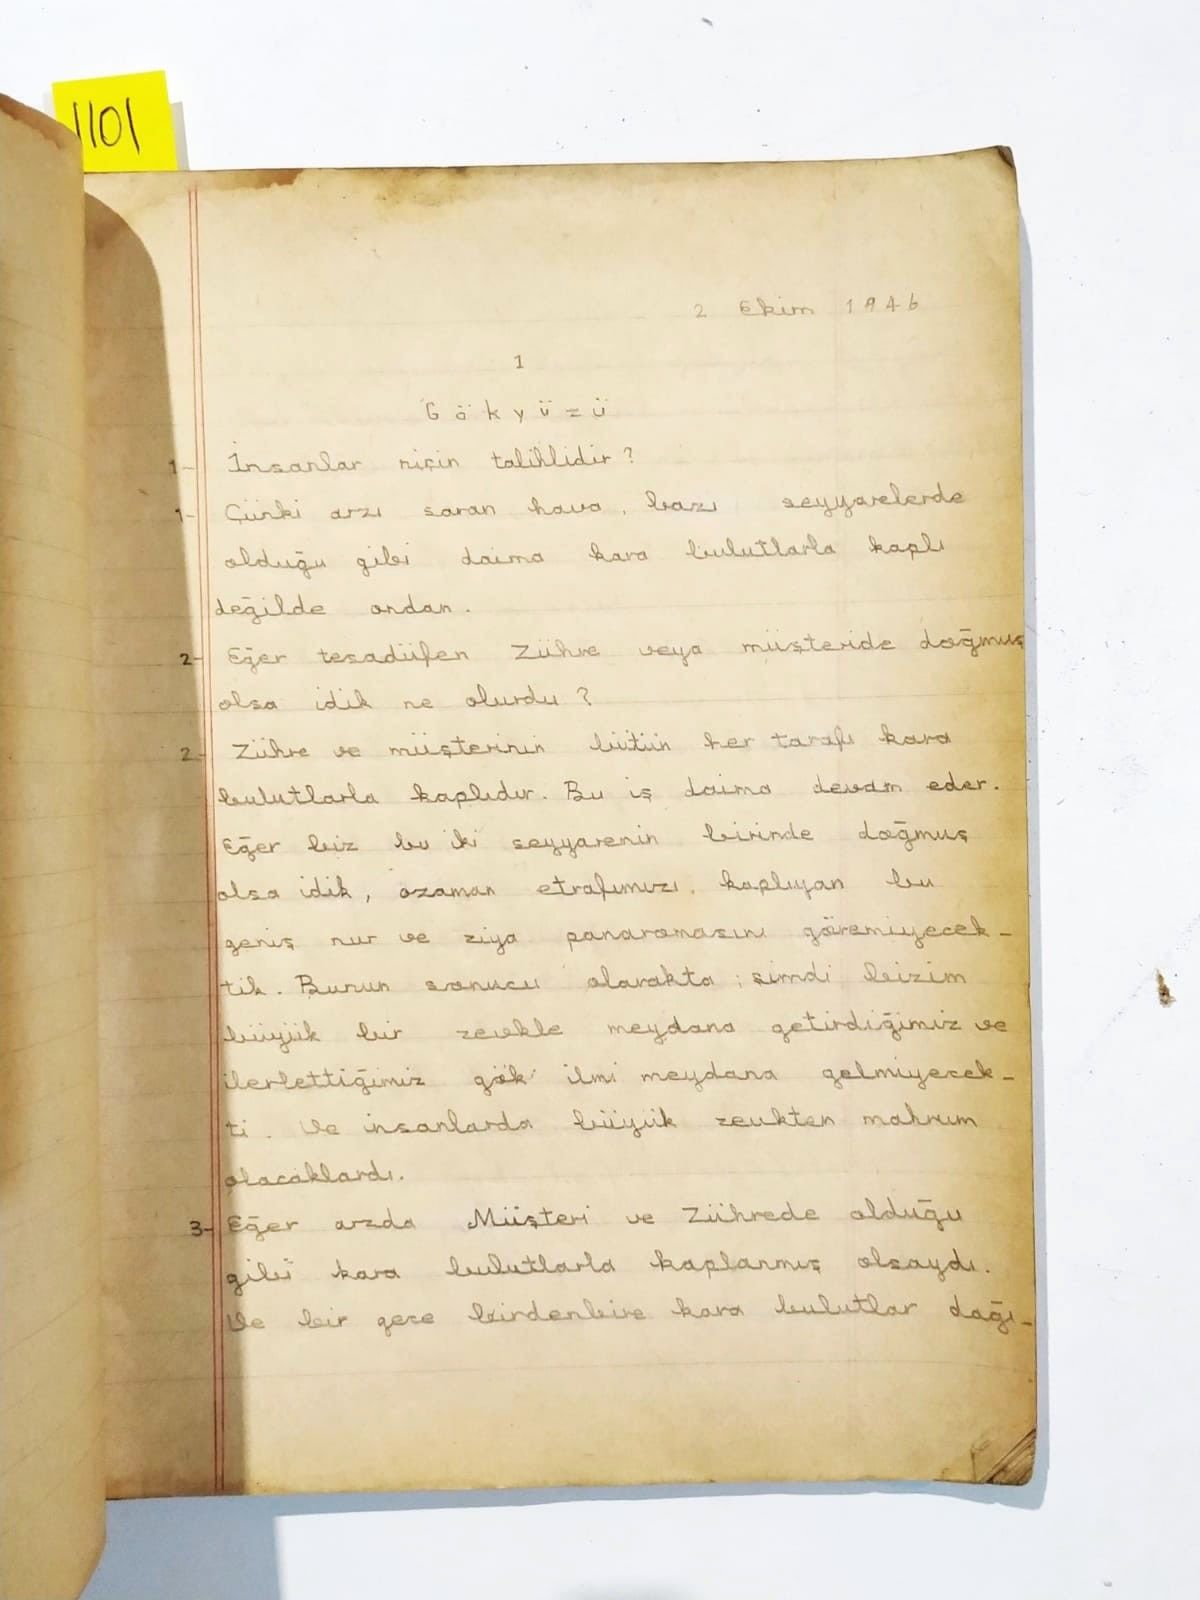 1101
2 Ekim 1946
1
Gökyüzü
1- İnsanlar niçin talihlidir?
1- Çünki arzı saran hava, bazı seyyarelerde
olduğu gibi daima kara bulutlarla kaplı
değilde ondan.
2- Eğer tesadüfen Zühre veya müşteride doğmuş
olsa idik ne olurdu?
2- Zühre ve müşterinin bütün her tarafı kara
bulutlarla kaplıdır. Bu iş daima devam eder.
Eğer biz bu iki seyyarenin birinde doğmuş
olsa idik, ozaman etrafımızı kaplıyan bu
geniş nur ve ziya panaromasını göremiyecek-
tik. Bunun sonucu olarakta; şimdi bizim
büyük bir zevkle meydana getirdiğimiz ve
ilerlettiğimiz gök ilmi meydana gelmiyecek-
ti. Ve insanlarda büyük zevkten mahrum
olacaklardı.
3- Eğer arzda Müşteri ve Zührede olduğu
gibi kara bulutlarla kaplanmış olsaydı.
Ve bir gece birdenbire kara bulutlar dağı-